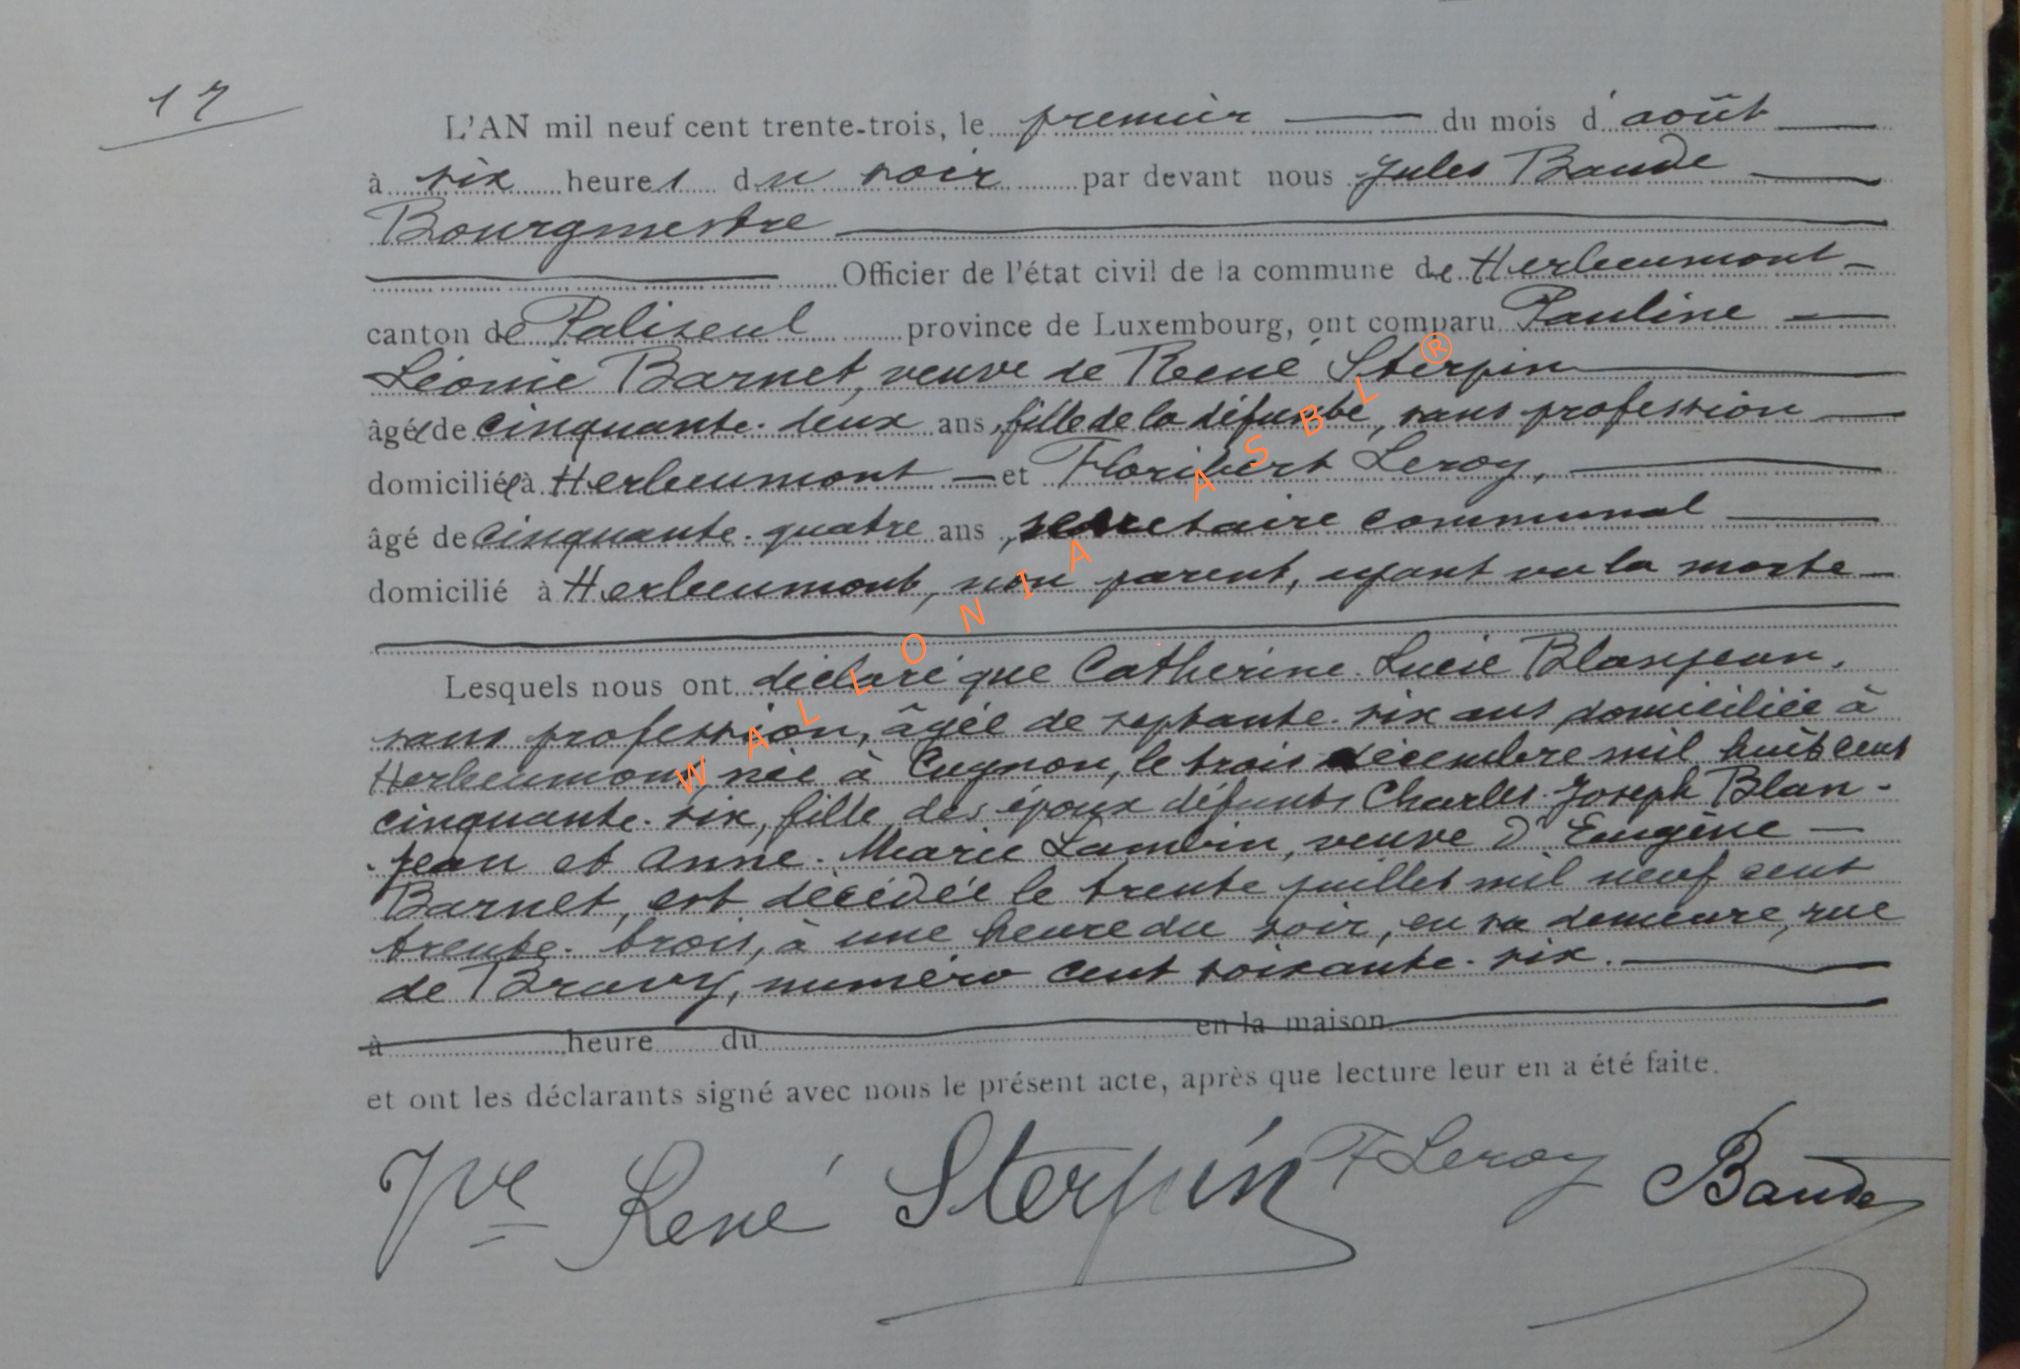 17
L'AN mil neuf cent trente-trois, le premier du mois d'août
à six heures du soir par devant nous Jules Baude
Bourgmestre
Officier de l'état civil de la commune de Herbeumont
canton de Paliseul province de Luxembourg, ont comparu Pauline
Léonie Barnet, veuve de René Sterpin
âgée de cinquante-deux ans, fille de la défunte, sans profession
domiciliée à Herbeumont et Floribert Leroy,
âgé de cinquante-quatre ans, secretaire communal
domicilié à Herbeumont, non parent, ayant vu la morte
Lesquels nous ont déclaré que Catherine-Lucie Blanjean,
sans profession, âgée de septante-six ans domiciliée à
Herbeumont née à Cugnon, le trois décembre mil huit cent
cinquante-six, fille des époux défunts Charles-Joseph Blan-
-jean et Anne-Marie Lambin, veuve d'Eugène
Barnet, est décédée le trente juillet mil neuf cent
trente-trois, à une heure du soir, en sa demeure, rue
de Bravy, numéro cent soixante-six.
à heure du en la maison
et ont les déclarants signé avec nous le présent acte, après que lecture leur en a été faite.
Vve René Sterpin F Leroy Baude
WALLONIA ASBL ®